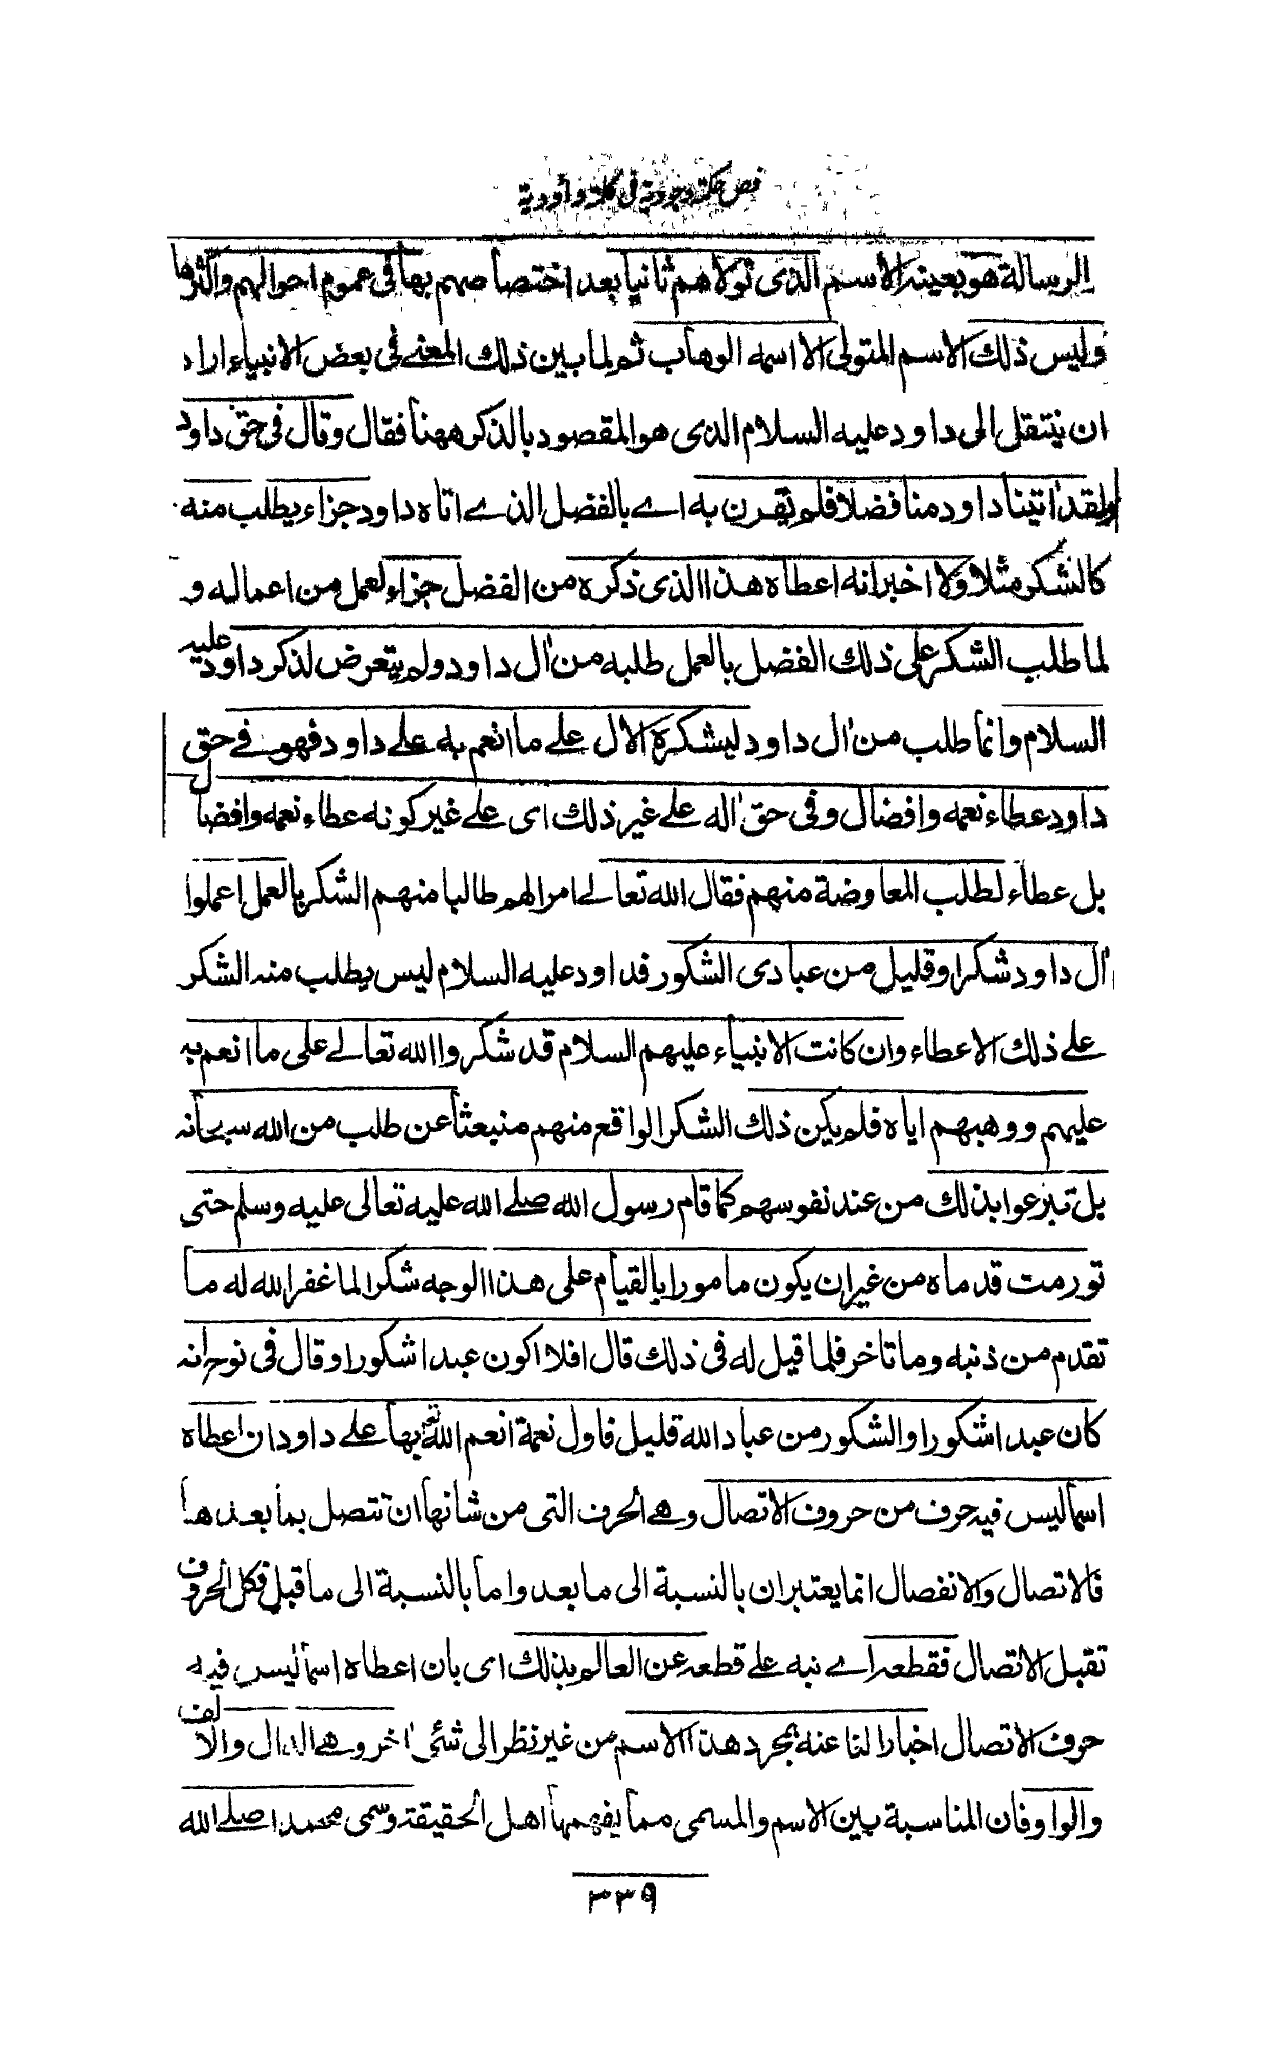 فص حكمة وجودية في كلمة داؤدية
الرسالة هو بعينه الاسم الذى تولاهم ثانيا بعد اختصاصهم بها فى عموم احوالهم واكثرها
وليس ذلك الاسم المتولى الا اسمه الوهاب ثم لما بين ذلك المعنے فى بعض الانبياء اراد
ان ينتقل الى داود عليه السلام الذى هو المقصود بالذكر ههنا فقال وقال فى حق داود
ولقد اتينا داود منا فضلا فلم يقرن به اے بالفضل الذے اتاه داود جزاء يطلب منه
كالشكر مثلا ولا اخبر انه اعطاه هذا الذى ذكره من الفضل جزاء لعمل من اعماله و
لما طلب الشكر على ذلك الفضل بالعمل طلبه من اٰل داود ولم يتعرض لذكر داود عليه
السلام وانما طلب من اٰل داود ليشكره الاٰل علے ما انعم به علے داود فهو فے حق
داود عطاء نعمه وافضال وفى حق اٰله علے غير ذلك اى علے غير كونه عطاء نعمه وافضال
بل عطاء لطلب المعاوضة منهم فقال الله تعالے امرا لهم طالبا منهم الشكر بالعمل اعملوا
اٰل داود شكرا وقليل من عبادى الشكور فداود عليه السلام ليس يطلب منه الشكر
علے ذلك الاعطاء وان كانت الانبياء عليهم السلام قد شكروا الله تعالے على ما انعم به
عليهم ووهبهم اياه فلم يكن ذلك الشكر الواقع منهم منبعثا عن طلب من الله سبحانه
بل تبرعوا بذلك من عند نفوسهم كما قام رسول الله صلے الله عليه تعالى عليه وسلم حتى
تورمت قدماه من غير ان يكون مامورا بالقيام على هذا الوجه شكرا لما غفر الله له ما
تقدم من ذنبه وما تاخر فلما قيل له فى ذلك قال افلا اكون عبدا شكورا وقال فى نوح انه
كان عبدا شكورا والشكور من عباد الله قليل فاول نعمة انعم الله بها علے داود ان اعطاه
اسما ليس فيه حرف من حروف الاتصال وهے الحرف التى من شانها ان تتصل بما بعدها
فالاتصال والانفصال انما يعتبران بالنسبة الى ما بعد واما بالنسبة الى ما قبل فكل الحروف
تقبل الاتصال فقطعه اے نبه علے قطعه عن العالم بذلك اى بان اعطاه اسما ليس فيه
حرف الاتصال اخبارا لنا عنه بمجرد هذا الاسم من غير نظر الى شئى اٰخر وهے الدال والالف
والواو فان المناسبة بين الاسم والمسمى مما يفهمها اهل الحقيقة وسمى محمدا صلے الله
٣٣٩